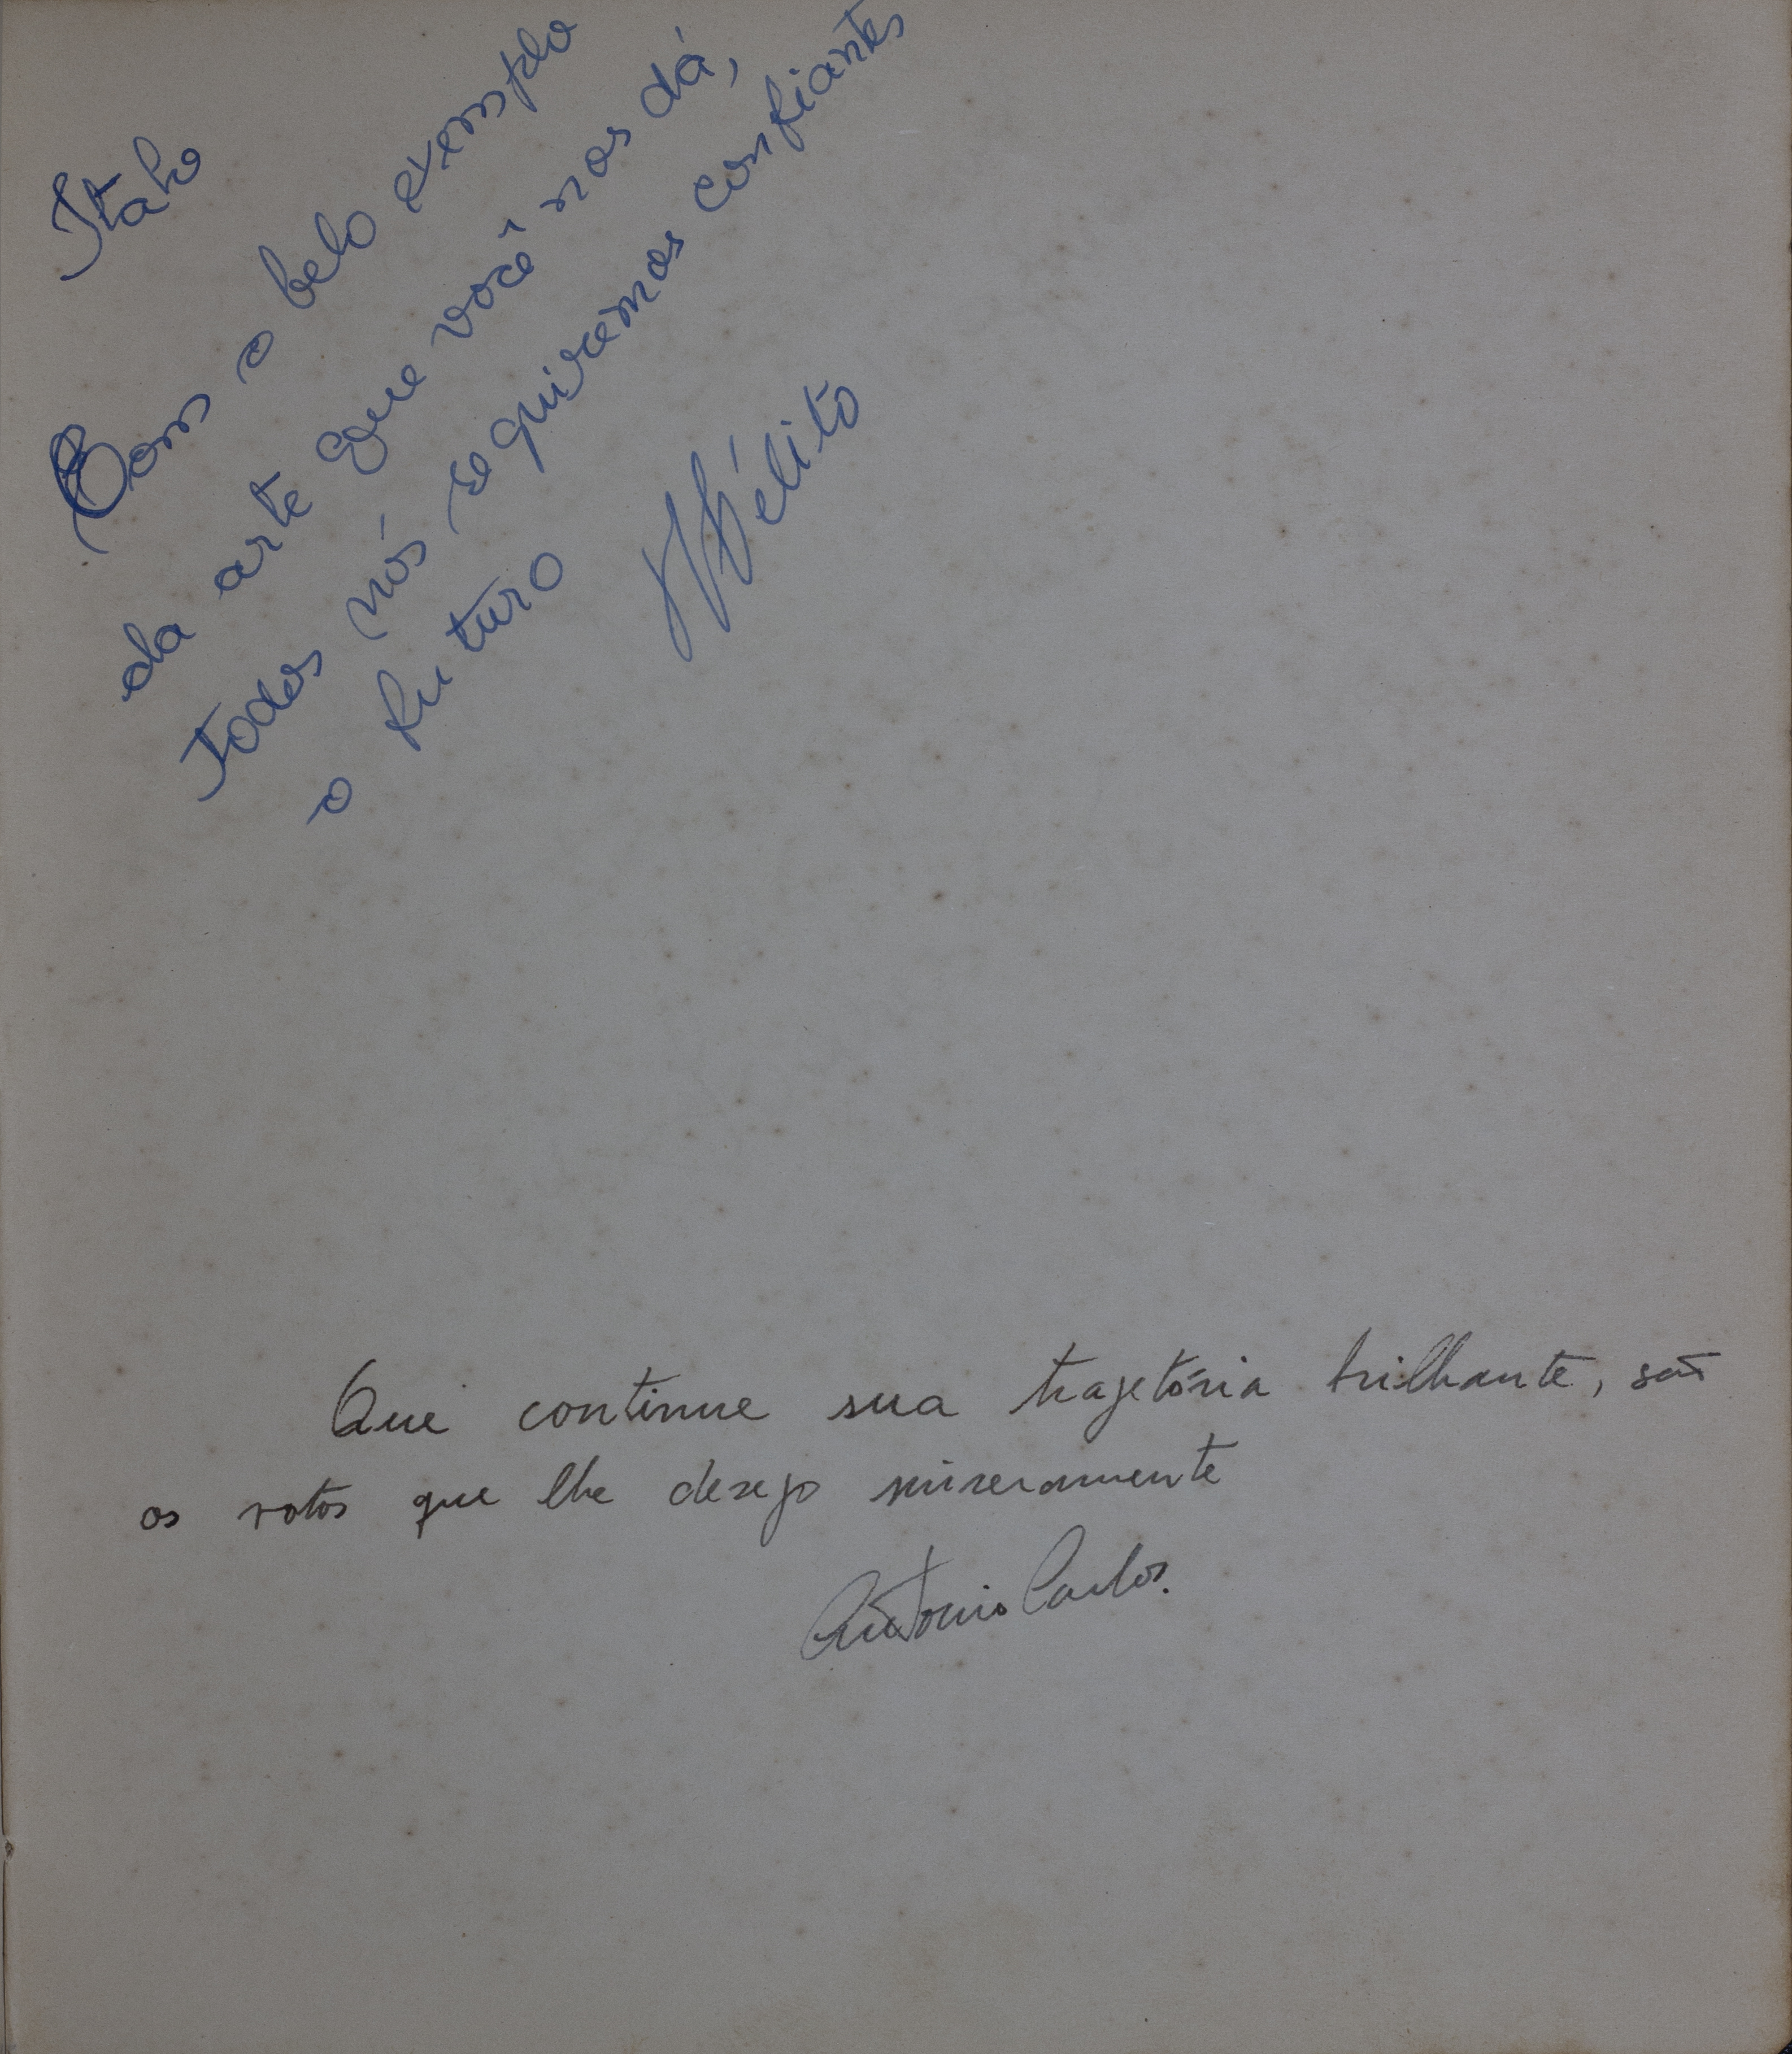 Itálo
Com o belo exemplo
da arte que você nos dá,
Todos nós seguiremos confiantes
o futuro
Hélito
Que continue sua trajetória brilhante, são
os votos que lhe desejo sinceramente
Antonio Carlos.